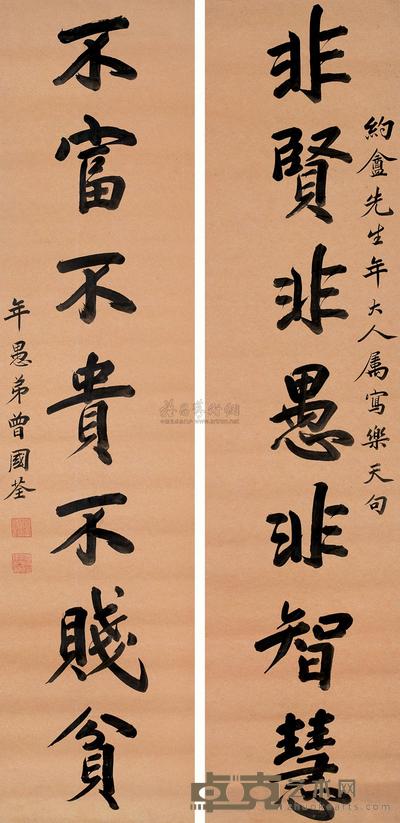 約盦先生年大人属寫樂天句
非賢非愚非智慧
不富不貴不賤貧
年愚弟曾國荃
卓克艺术网